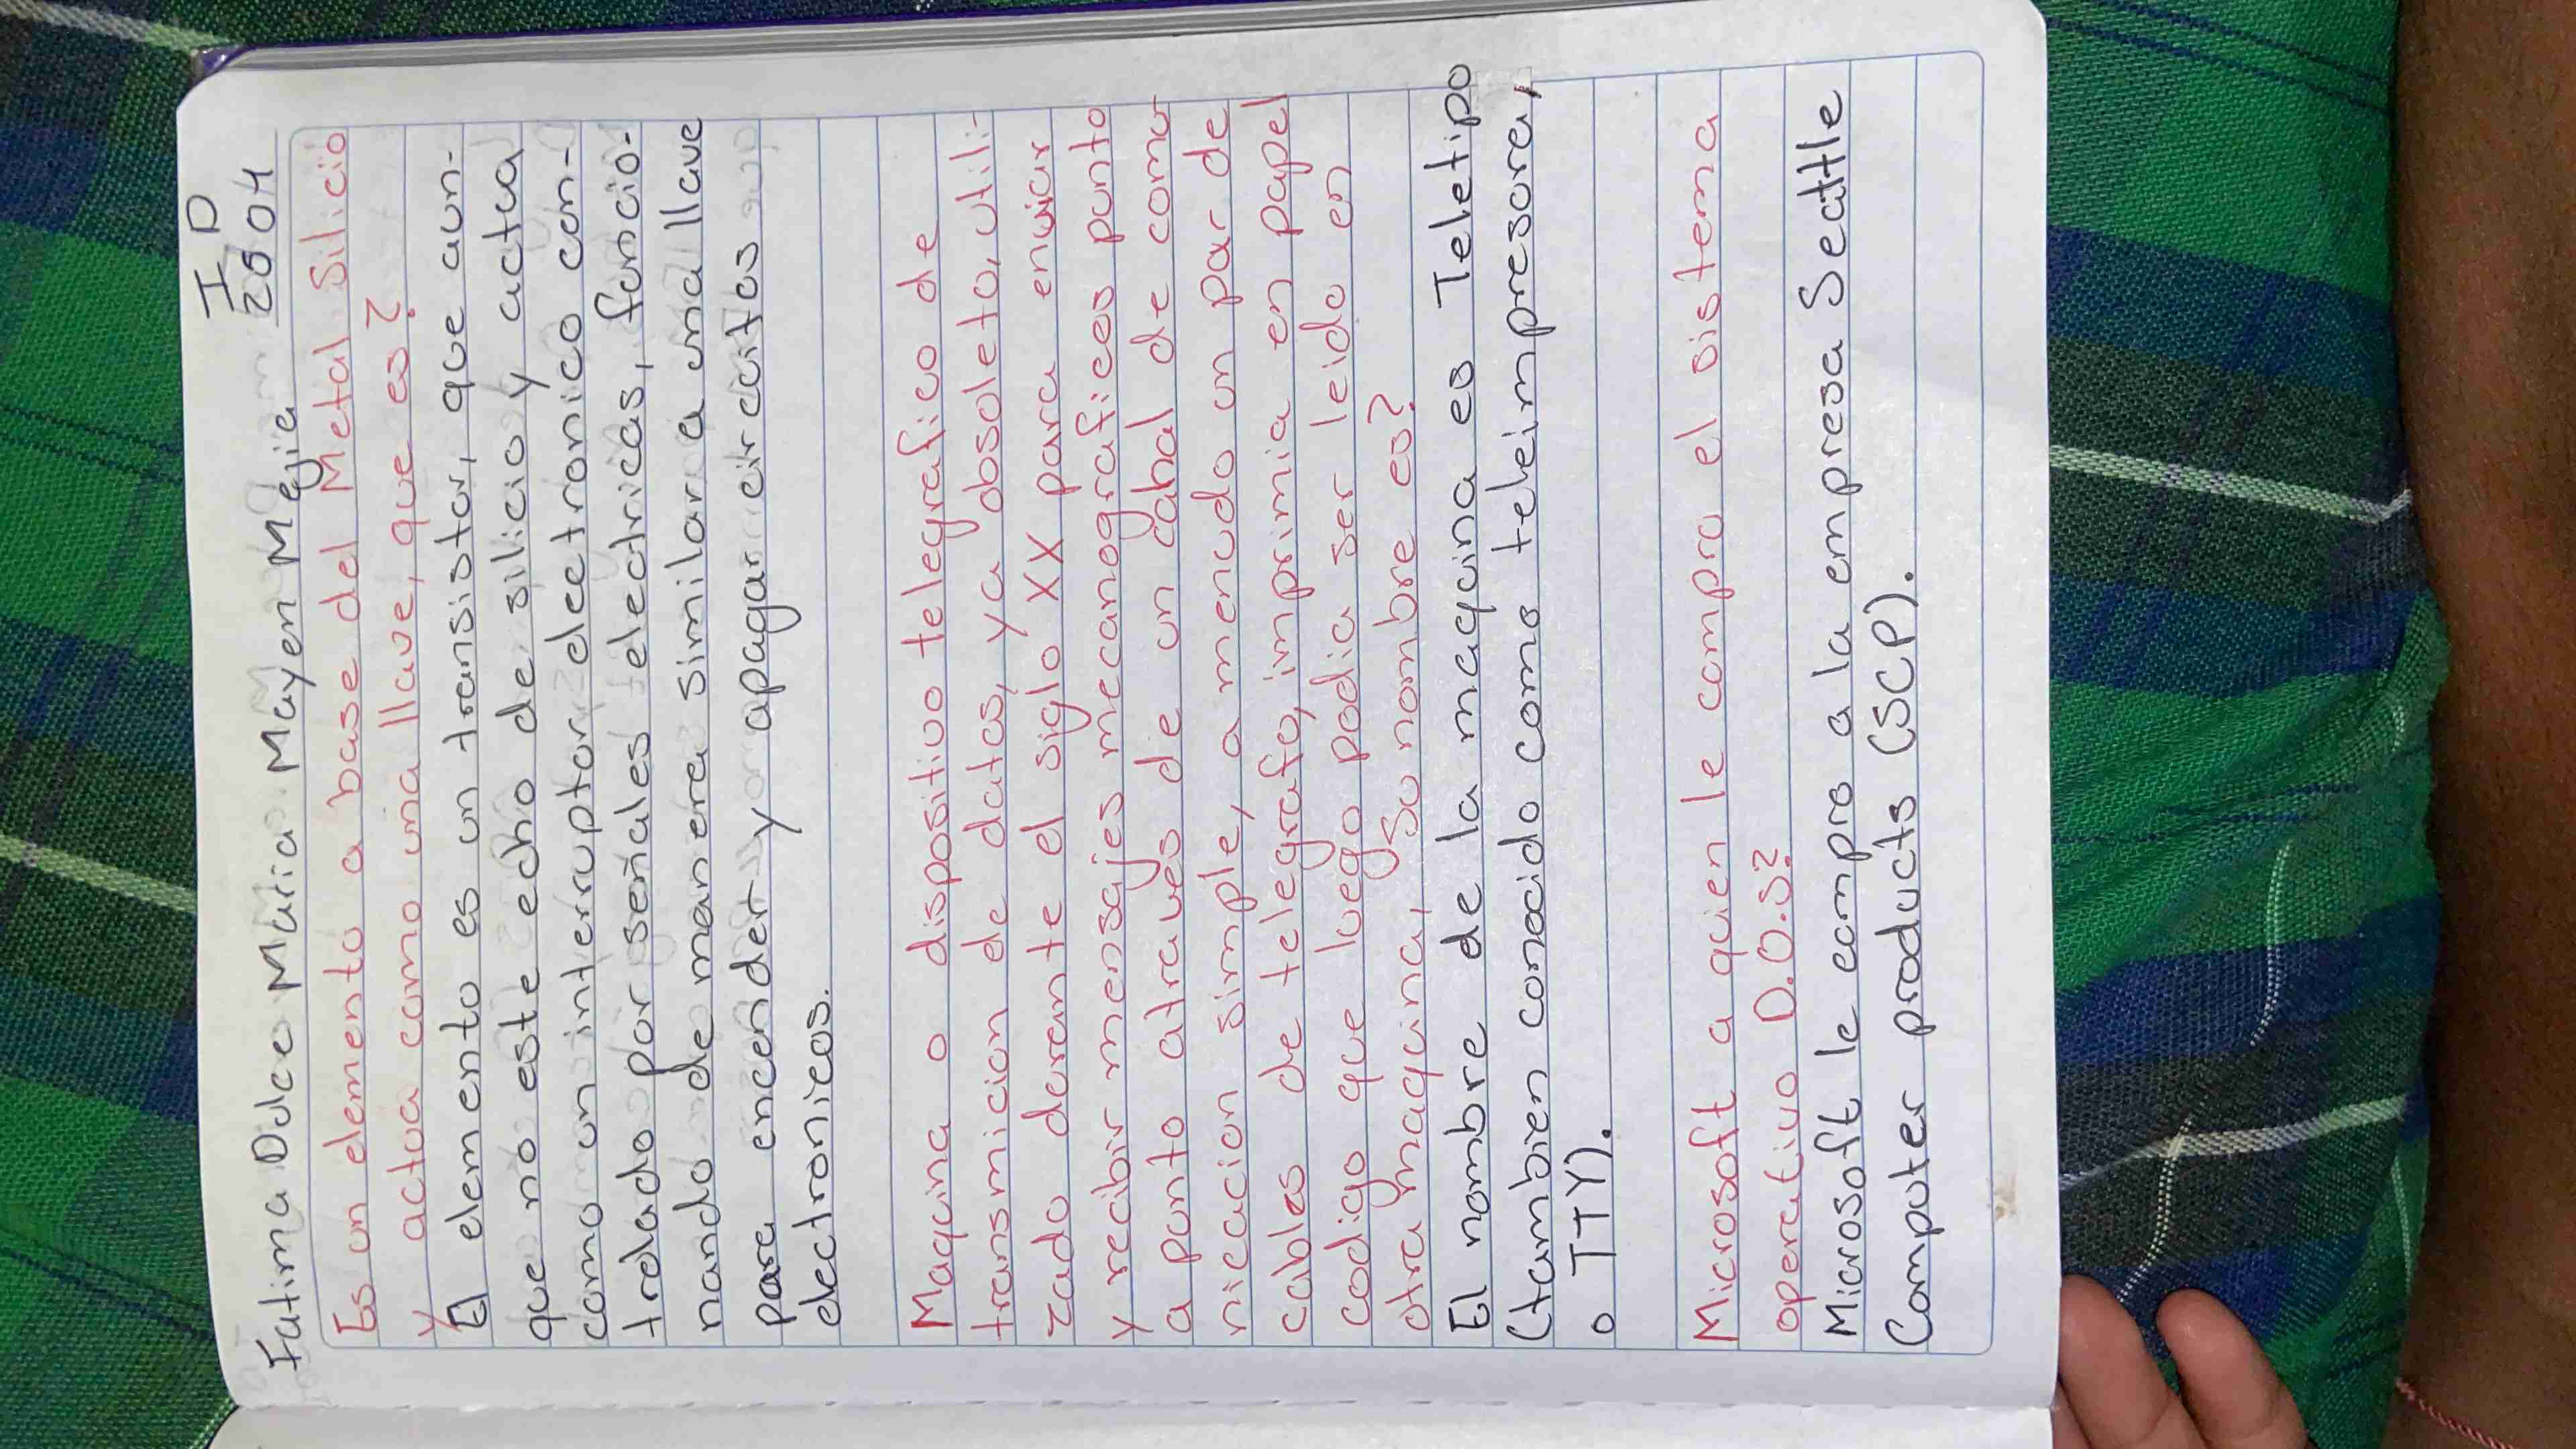 I D
Fatima Dulce Maria Mayen Mejia 2504
Es un elemento a base del Metal Silicio
y actua como una llave, que es?
El elemento es un transistor, que aun-
que no este echo de silicio y actua
como un interruptor electronico con-
trolado por señales electricas, funcio-
nando de manera similar a una llave
para encender y apagar circuitos
electronicos.
Maqcina o dispositivo telegrafico de
transmicion de datos, ya obsoleto, utili-
zado durante el siglo XX para enviar
y recibir mensajes mecanograficos punto
a punto atraves de un cahal de comu
nicacion simple, a menudo un par de
cables de telegrafo, imprimia en papel
codigo que luego podia ser leido en
otra maqcina, Su nombre es?
El nombre de la maqcina es Teletipo
(tambien conocido como teleimpresora,
o TTY).
Microsoft a quien le compro el sistema
operativo D.O.S?
Microsoft le compro a la empresa Seattle
Computer products (SCP).